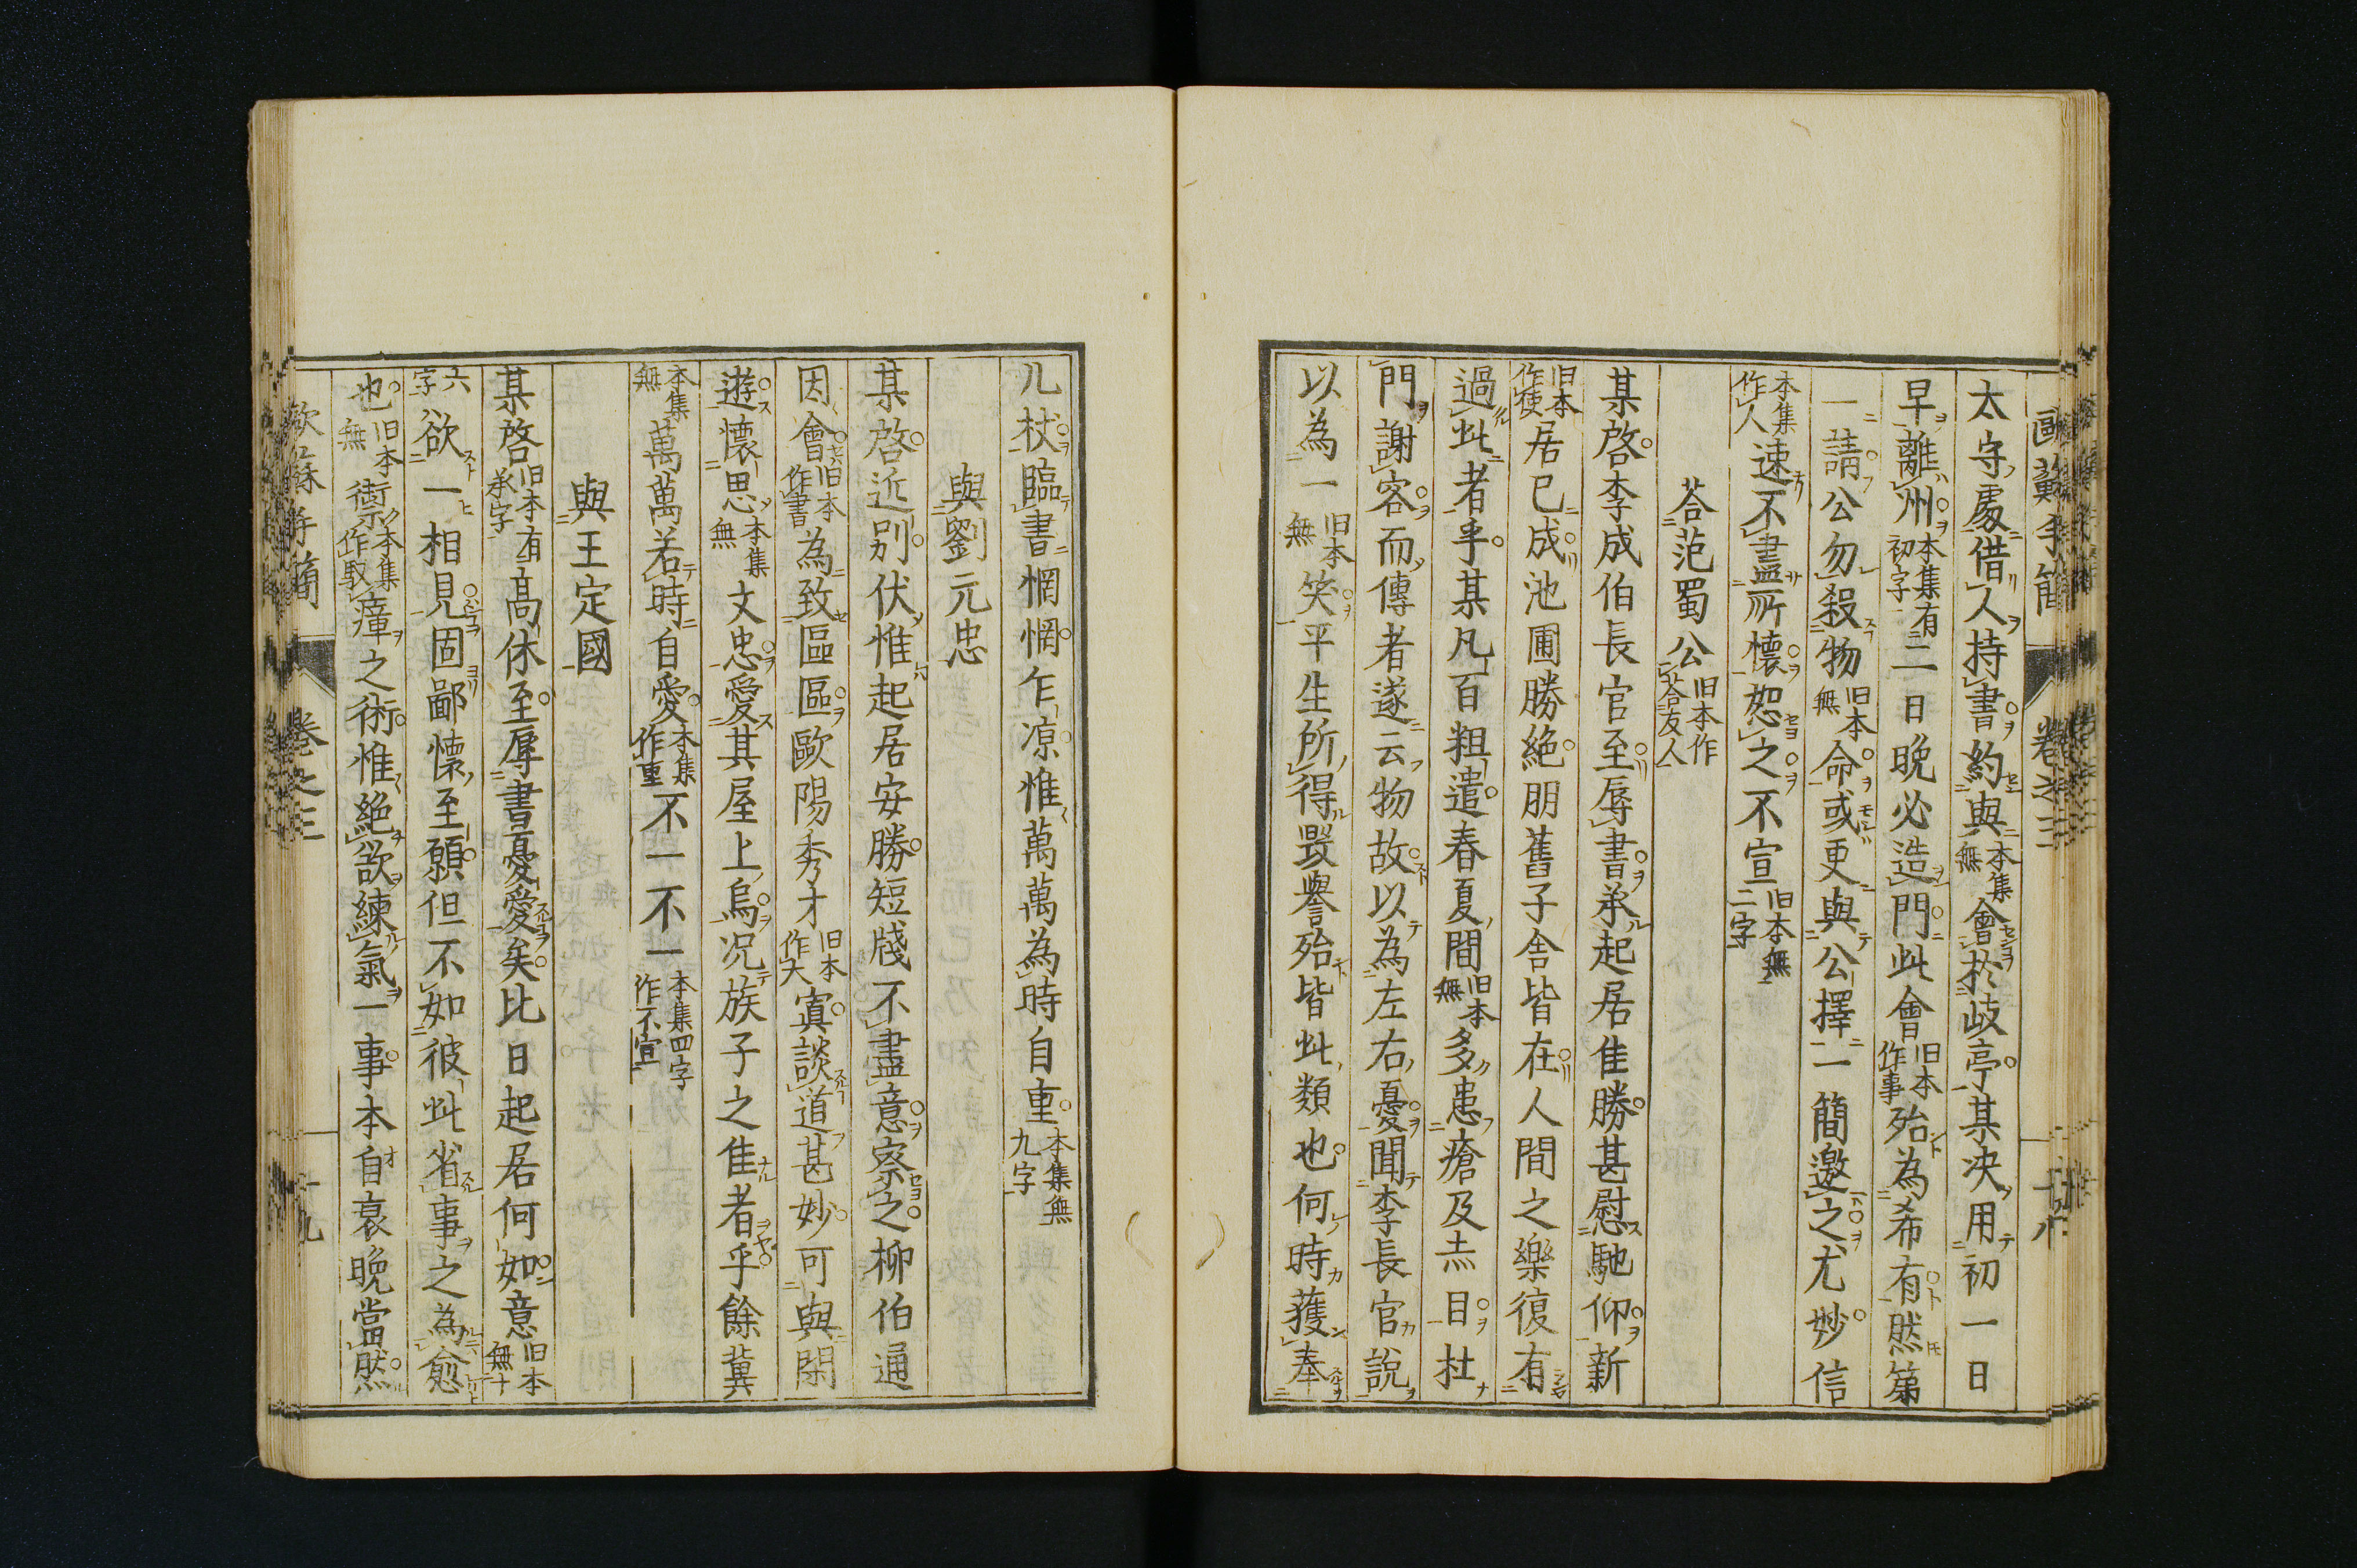 歐蘇手簡 卷之三 十八
太守處借人持書約與本集無會於歧亭某決用初一日
早離州本集有初字二日晚必造門此會旧本作事殆為希有然第
一請公勿殺物旧本無命或更與公擇一簡邀之尤妙信
本集作人速不盡所懷恕之不宣旧本無二字
荅范蜀公旧本作荅友人
某啓李成伯長官至辱書承起居佳勝甚慰馳仰新
旧本作使居已成池圃勝絶朋舊子舍皆在人間之樂復有
過此者乎某凡百粗遣春夏間旧本無多患瘡及赤目杜
門謝客而傳者遂云物故以為左右憂聞李長官說
以為一旧本無笑平生所得毀譽殆皆此類也何時獲奉
几杖臨書惘惘乍凉惟萬萬為時自重本集無九字
與劉元忠
某啓近別伏惟起居安勝短牋不盡意察之柳伯通
因會旧本作書為致區區歐陽秀才旧本作大寘談道甚妙可與閑
遊懷思本集無文忠愛其屋上烏况族子之佳者乎餘冀
本集無萬萬若時自愛本集作重不一不一本集四字作不宣
與王定國
某啓旧本有承字高休至辱書憂愛矣比日起居何如意旧本無十
六字欲一相見固鄙懷至願但不如彼此省事之為愈
也旧本無禦本集作馭瘴之術惟絶欲練氣一事本自衰晚當然
歐蘇手簡 卷之三 十九